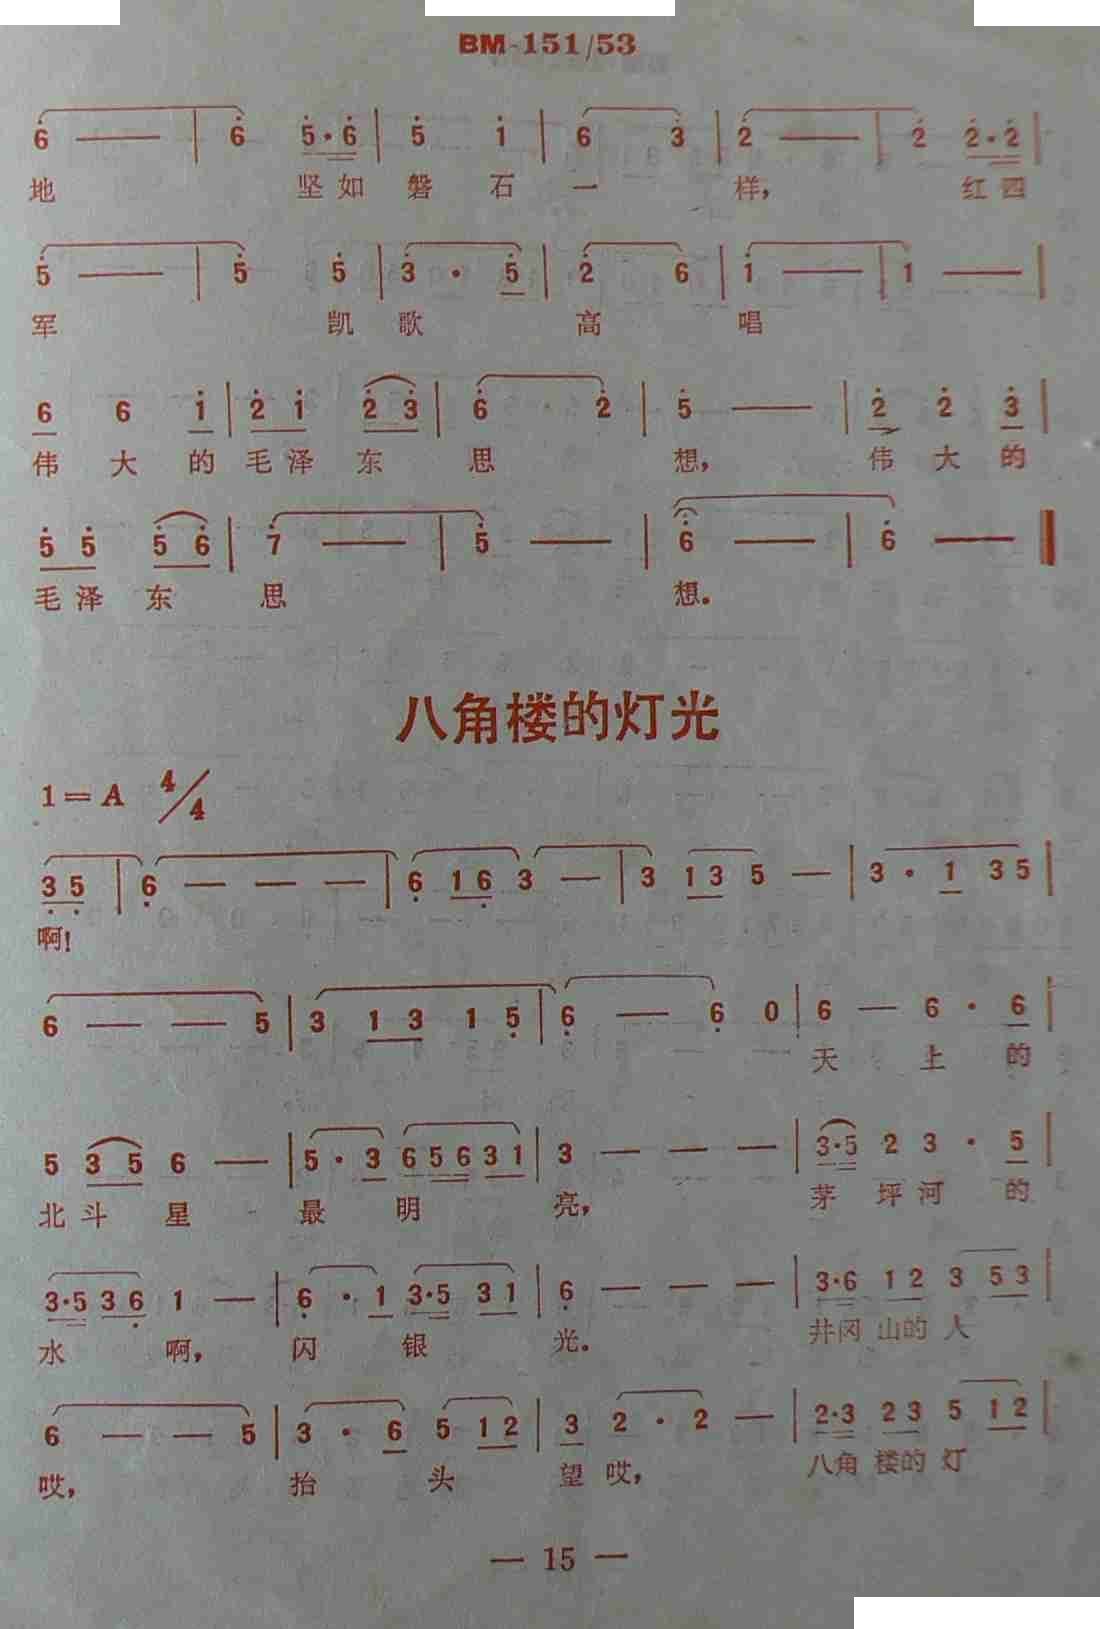 BM-151/53
6 — | 6 5·6 | 5 1 | 6 3 | 2 — | 2 2·2 |
地 坚如 磐 石 一 样， 红四
5 — | 5 5 | 3 · 5 | 2 6 | 1 — | 1 — |
军 凯 歌 高 唱
6 6 1 | 2 1 2 3 | 6 · 2 | 5 — | 2 2 3 |
伟 大 的 毛 泽 东 思 想， 伟 大 的
5 5 5 6 | 7 — | 5 — | 6 — | 6 — ‖
毛 泽 东 思 想。
八角楼的灯光
1=A 4/4
3 5 | 6 — — — | 6 1 6 3 — | 3 1 3 5 — | 3 · 1 3 5 |
啊!
6 — — 5 | 3 1 3 1 5 | 6 — 6 0 | 6 — 6 · 6 |
天 上 的
5 3 5 6 — | 5 · 3 6 5 6 3 1 | 3 — — — | 3·5 2 3 · 5 |
北 斗 星 最 明 亮， 茅 坪 河 的
3·5 3 6 1 — | 6 · 1 3·5 3 1 | 6 — — — | 3·6 1 2 3 5 3 |
水 啊， 闪 银 光。 井冈 山的 人
6 — — 5 | 3 · 6 5 1 2 | 3 2 · 2 — | 2·3 2 3 5 1 2 |
哎， 抬 头 望 哎， 八角 楼的 灯
— 15 —